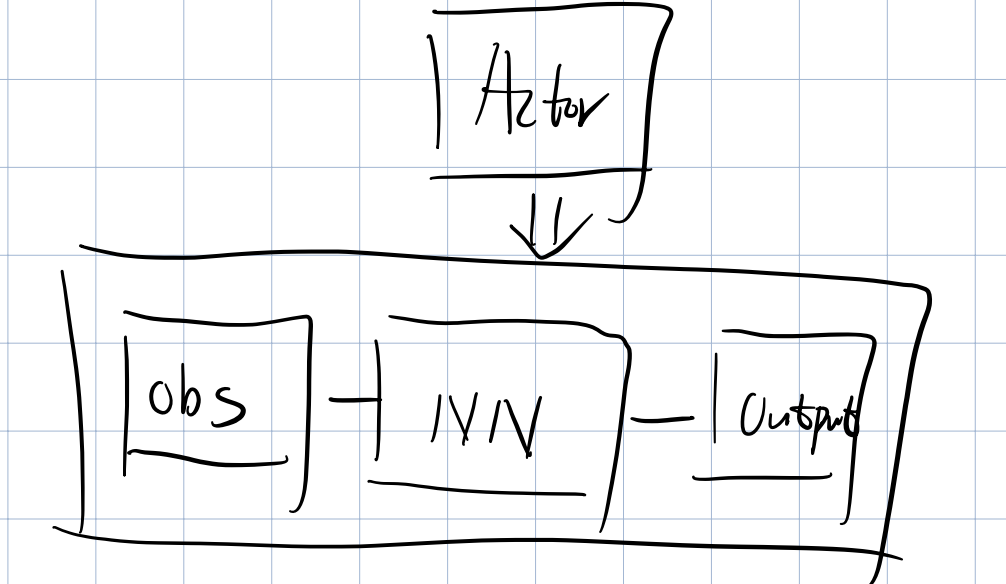 Actor
obs NN Output